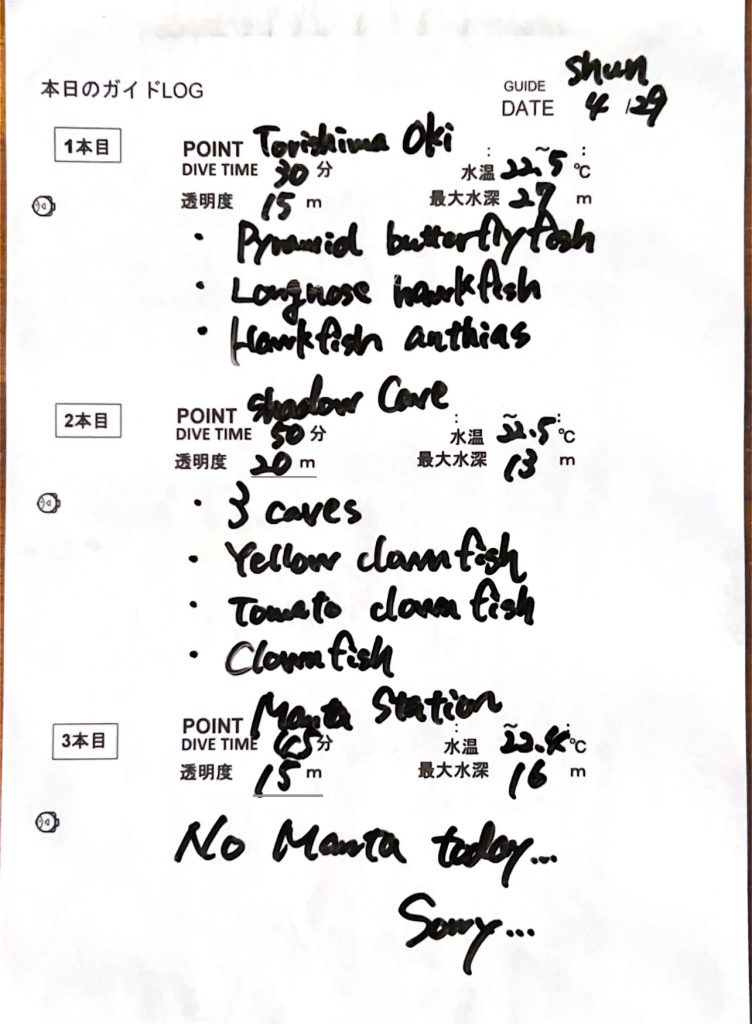 本日のガイドLOG
GUIDE Shun
DATE 4/29
1本目
POINT Torishima Oki
DIVE TIME 30分 水温 : ~ : 22.5℃
透明度 15m 最大水深 27m
・Pyramid butterflyfish
・Longnose hawkfish
・Hawkfish anthias
2本目
POINT Shadow Cave
DIVE TIME 50分 水温 : ~ : 22.5℃
透明度 20m 最大水深 13m
・3 caves
・Yellow clownfish
・Tomato clownfish
・Clownfish
3本目
POINT Manta Station
DIVE TIME 45分 水温 : ~ : 22.4℃
透明度 15m 最大水深 16m
No Manta today...
Sorry...